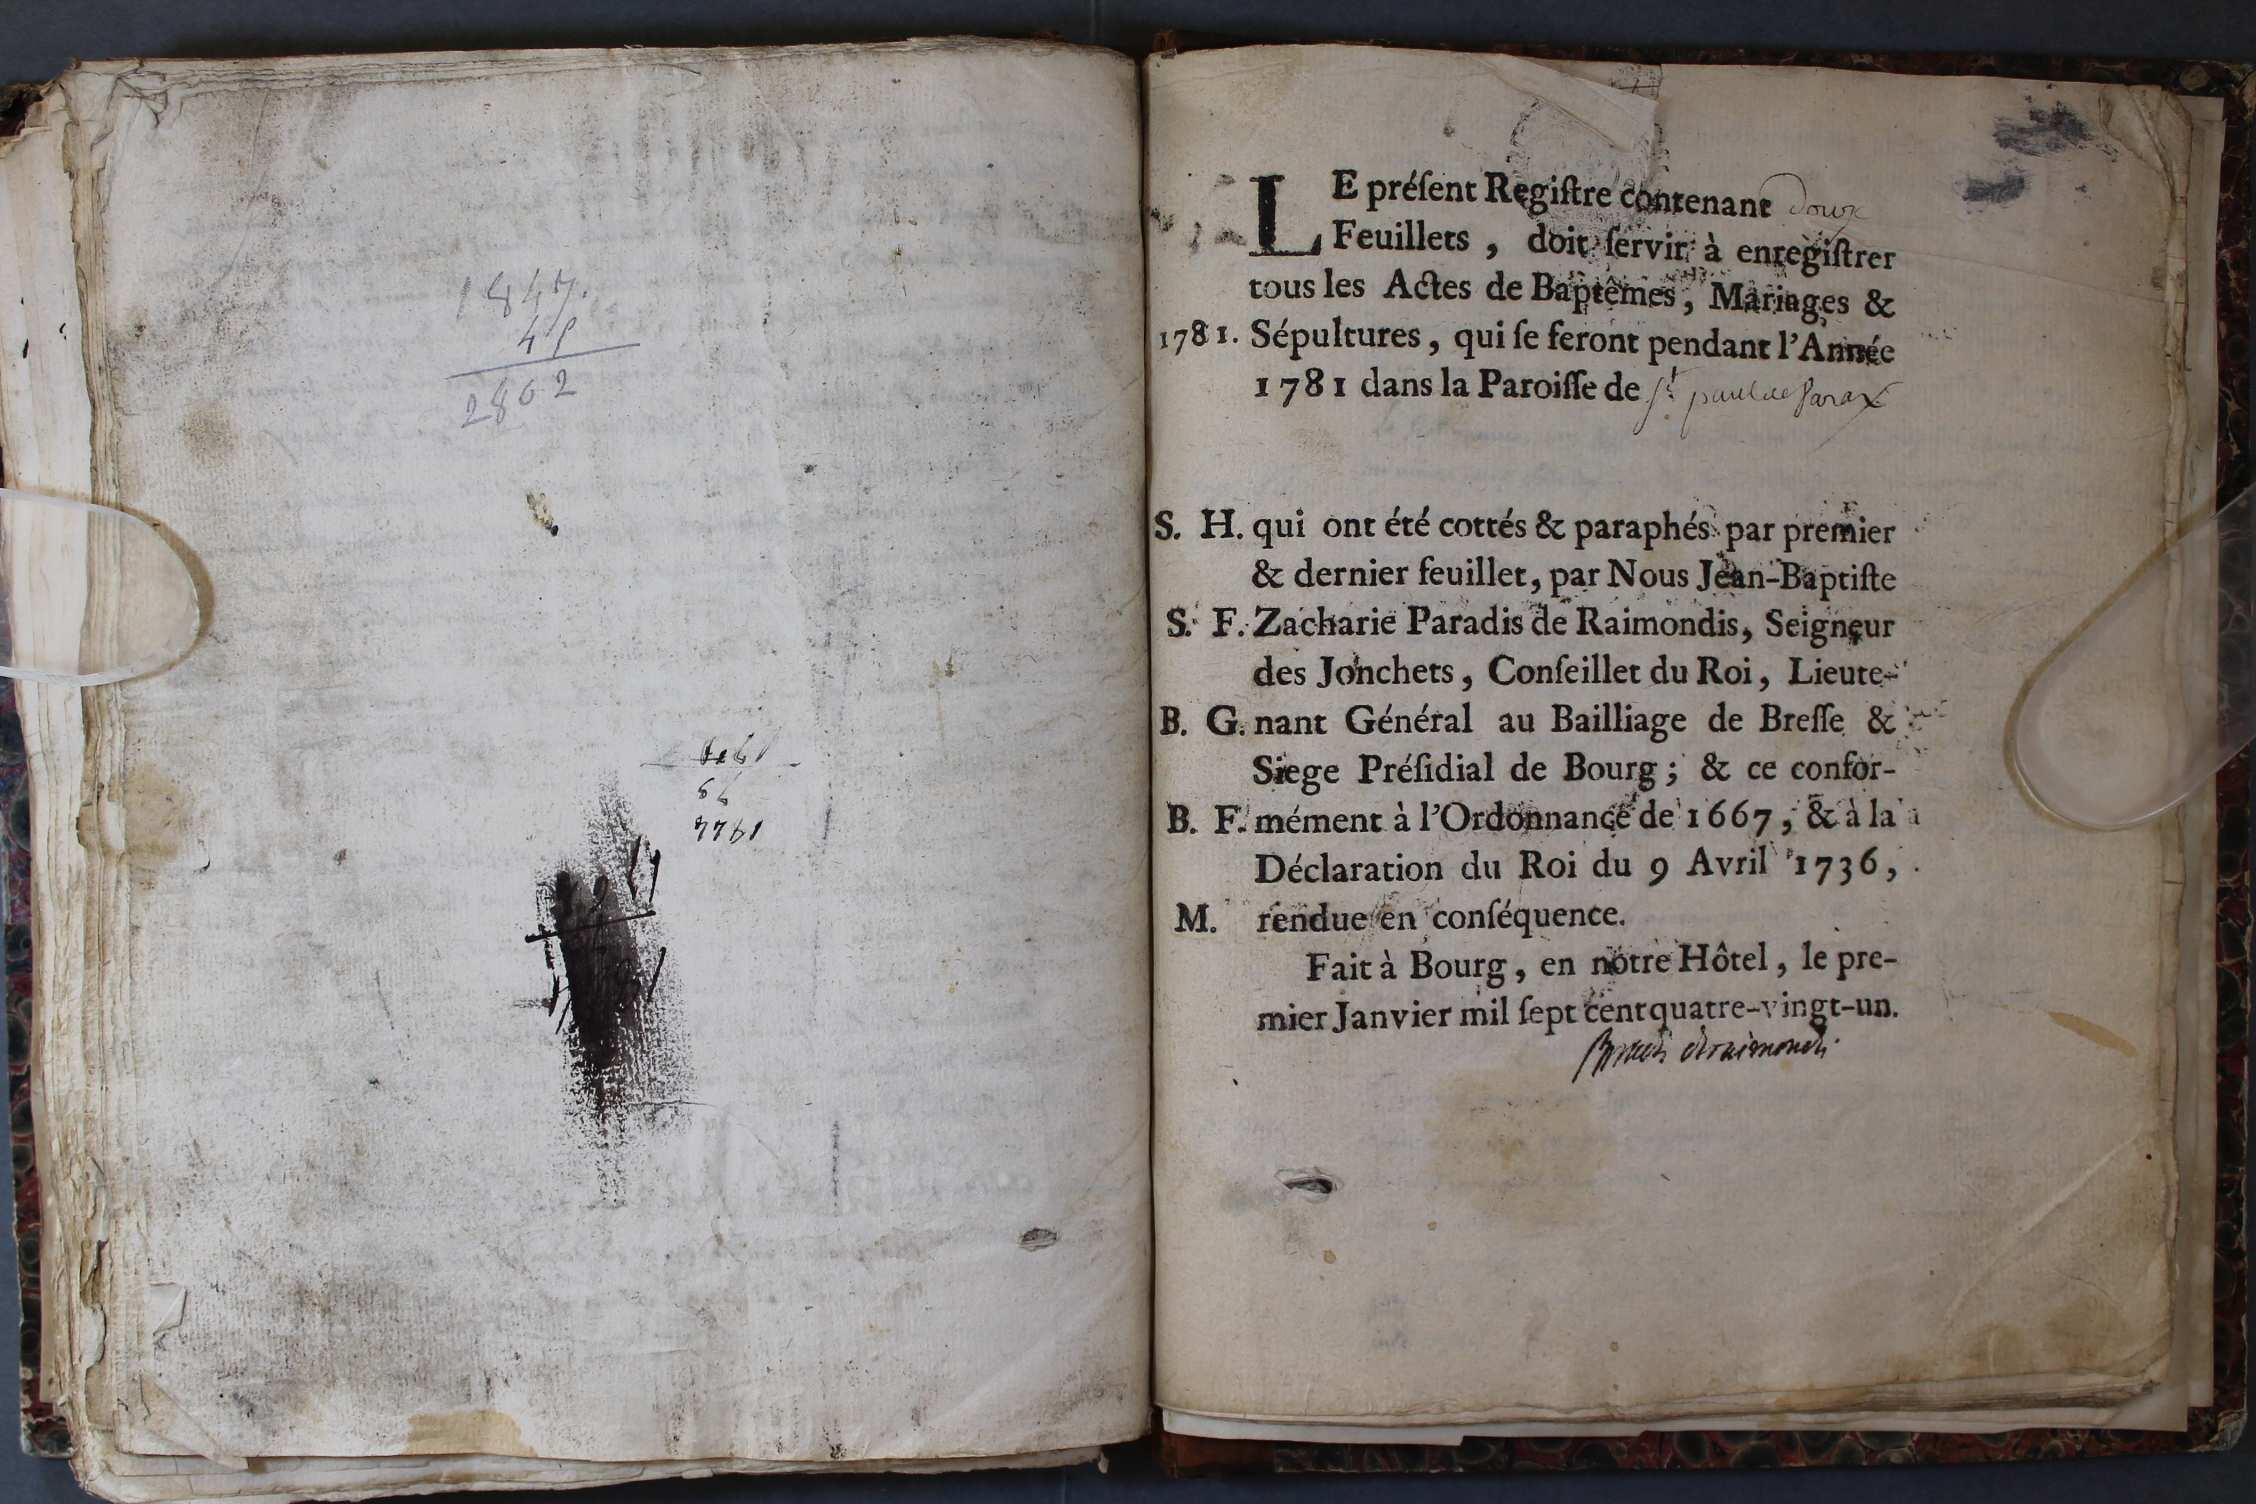 1847.
45
2862
LE préſent Regiſtre contenant douze
Feuillets, doit ſervir à enregiſtrer
tous les Actes de Baptêmes, Mariages &
1781. Sépultures, qui ſe feront pendant l'Année
1781 dans la Paroiſſe de St paul de Varax
S. H. qui ont été cottés & paraphés par premier
& dernier feuillet, par Nous Jean-Baptiſte
S. F. Zacharie Paradis de Raimondis, Seigneur
des Jonchets, Conſeillet du Roi, Lieute-
B. G. nant Général au Bailliage de Breſſe &
Siege Préſidial de Bourg; & ce confor-
B. F. mément à l'Ordonnance de 1667, & à la
Déclaration du Roi du 9 Avril 1736,
M. rendue en conſéquence.
Fait à Bourg, en notre Hôtel, le pre-
mier Janvier mil ſept cent quatre-vingt-un.
Paradis deraimondis